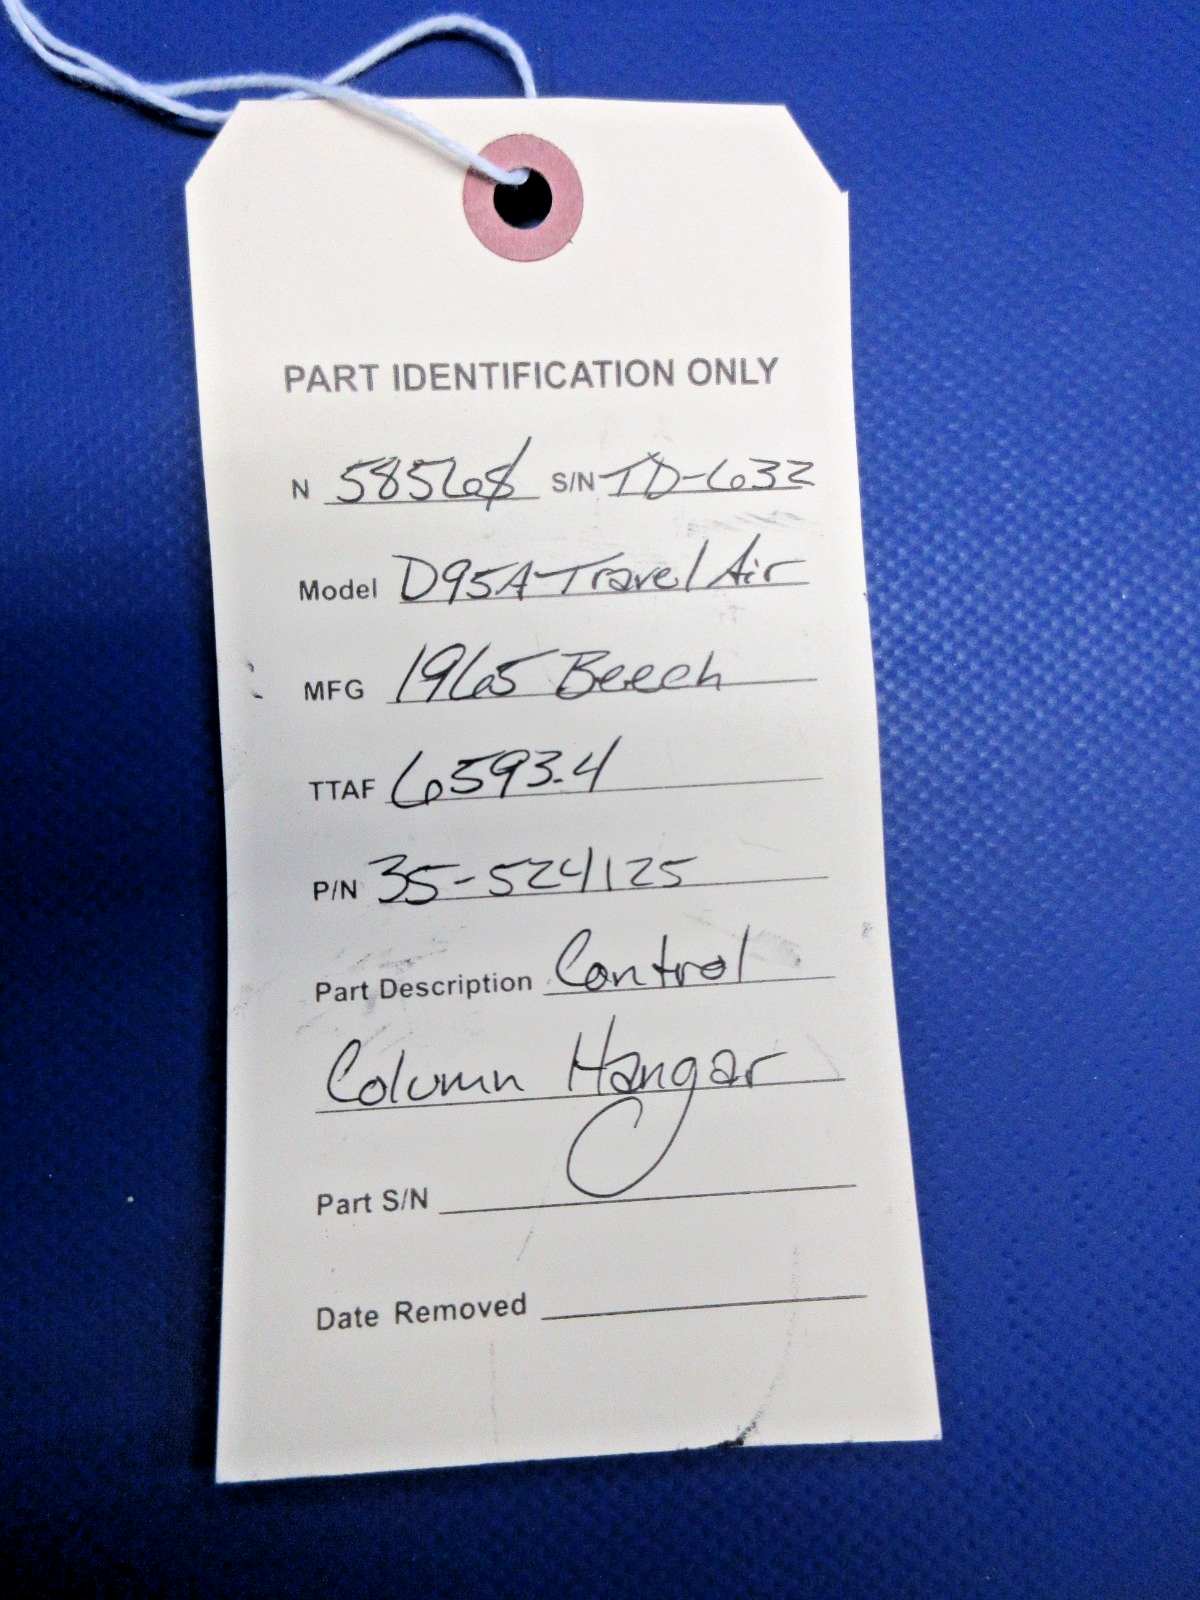 PART IDENTIFICATION ONLY
N 58568 S/N TD-632
Model D95A Travel Air
MFG 1965 Beech
TTAF 6593.4
P/N 35-524125
Part Description Control
Column Hangar
Part S/N
Date Removed